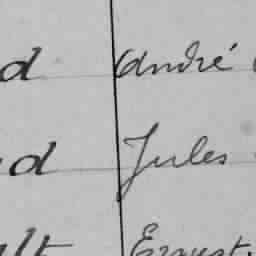 d André
d Jules
lt Ernest